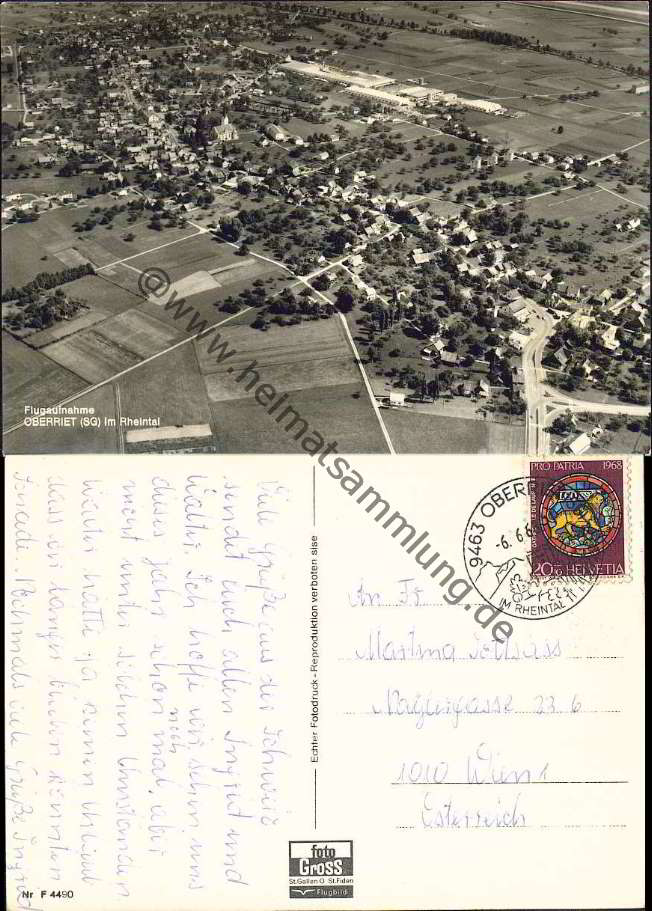 Flugaufnahme
OBERRIET (SG) im Rheintal
@ www.heimatsammlung.de
Viele Grüße aus der Schweiz
sendet euch allen Ingrid und
Walter. Ich hoffe wir sehen uns
dieses Jahr schon noch mal, aber
nicht unter solchen Umständen
Walter hatte ja keinen Urlaub
dass wir länger bleiben könnten
Nochmals viele Grüße Ingrid
Echter Fotodruck - Reproduktion verboten sise
PRO PATRIA 1968
20+10 HELVETIA
9463 OBERR
-6. 6
IM RHEINTAL
An Fr
Martina
Naglergasse 23 6
1010 Wien 1
Österreich
foto
Gross
St.Gallen O St.Fiden
Flugbild
Nr F 4490